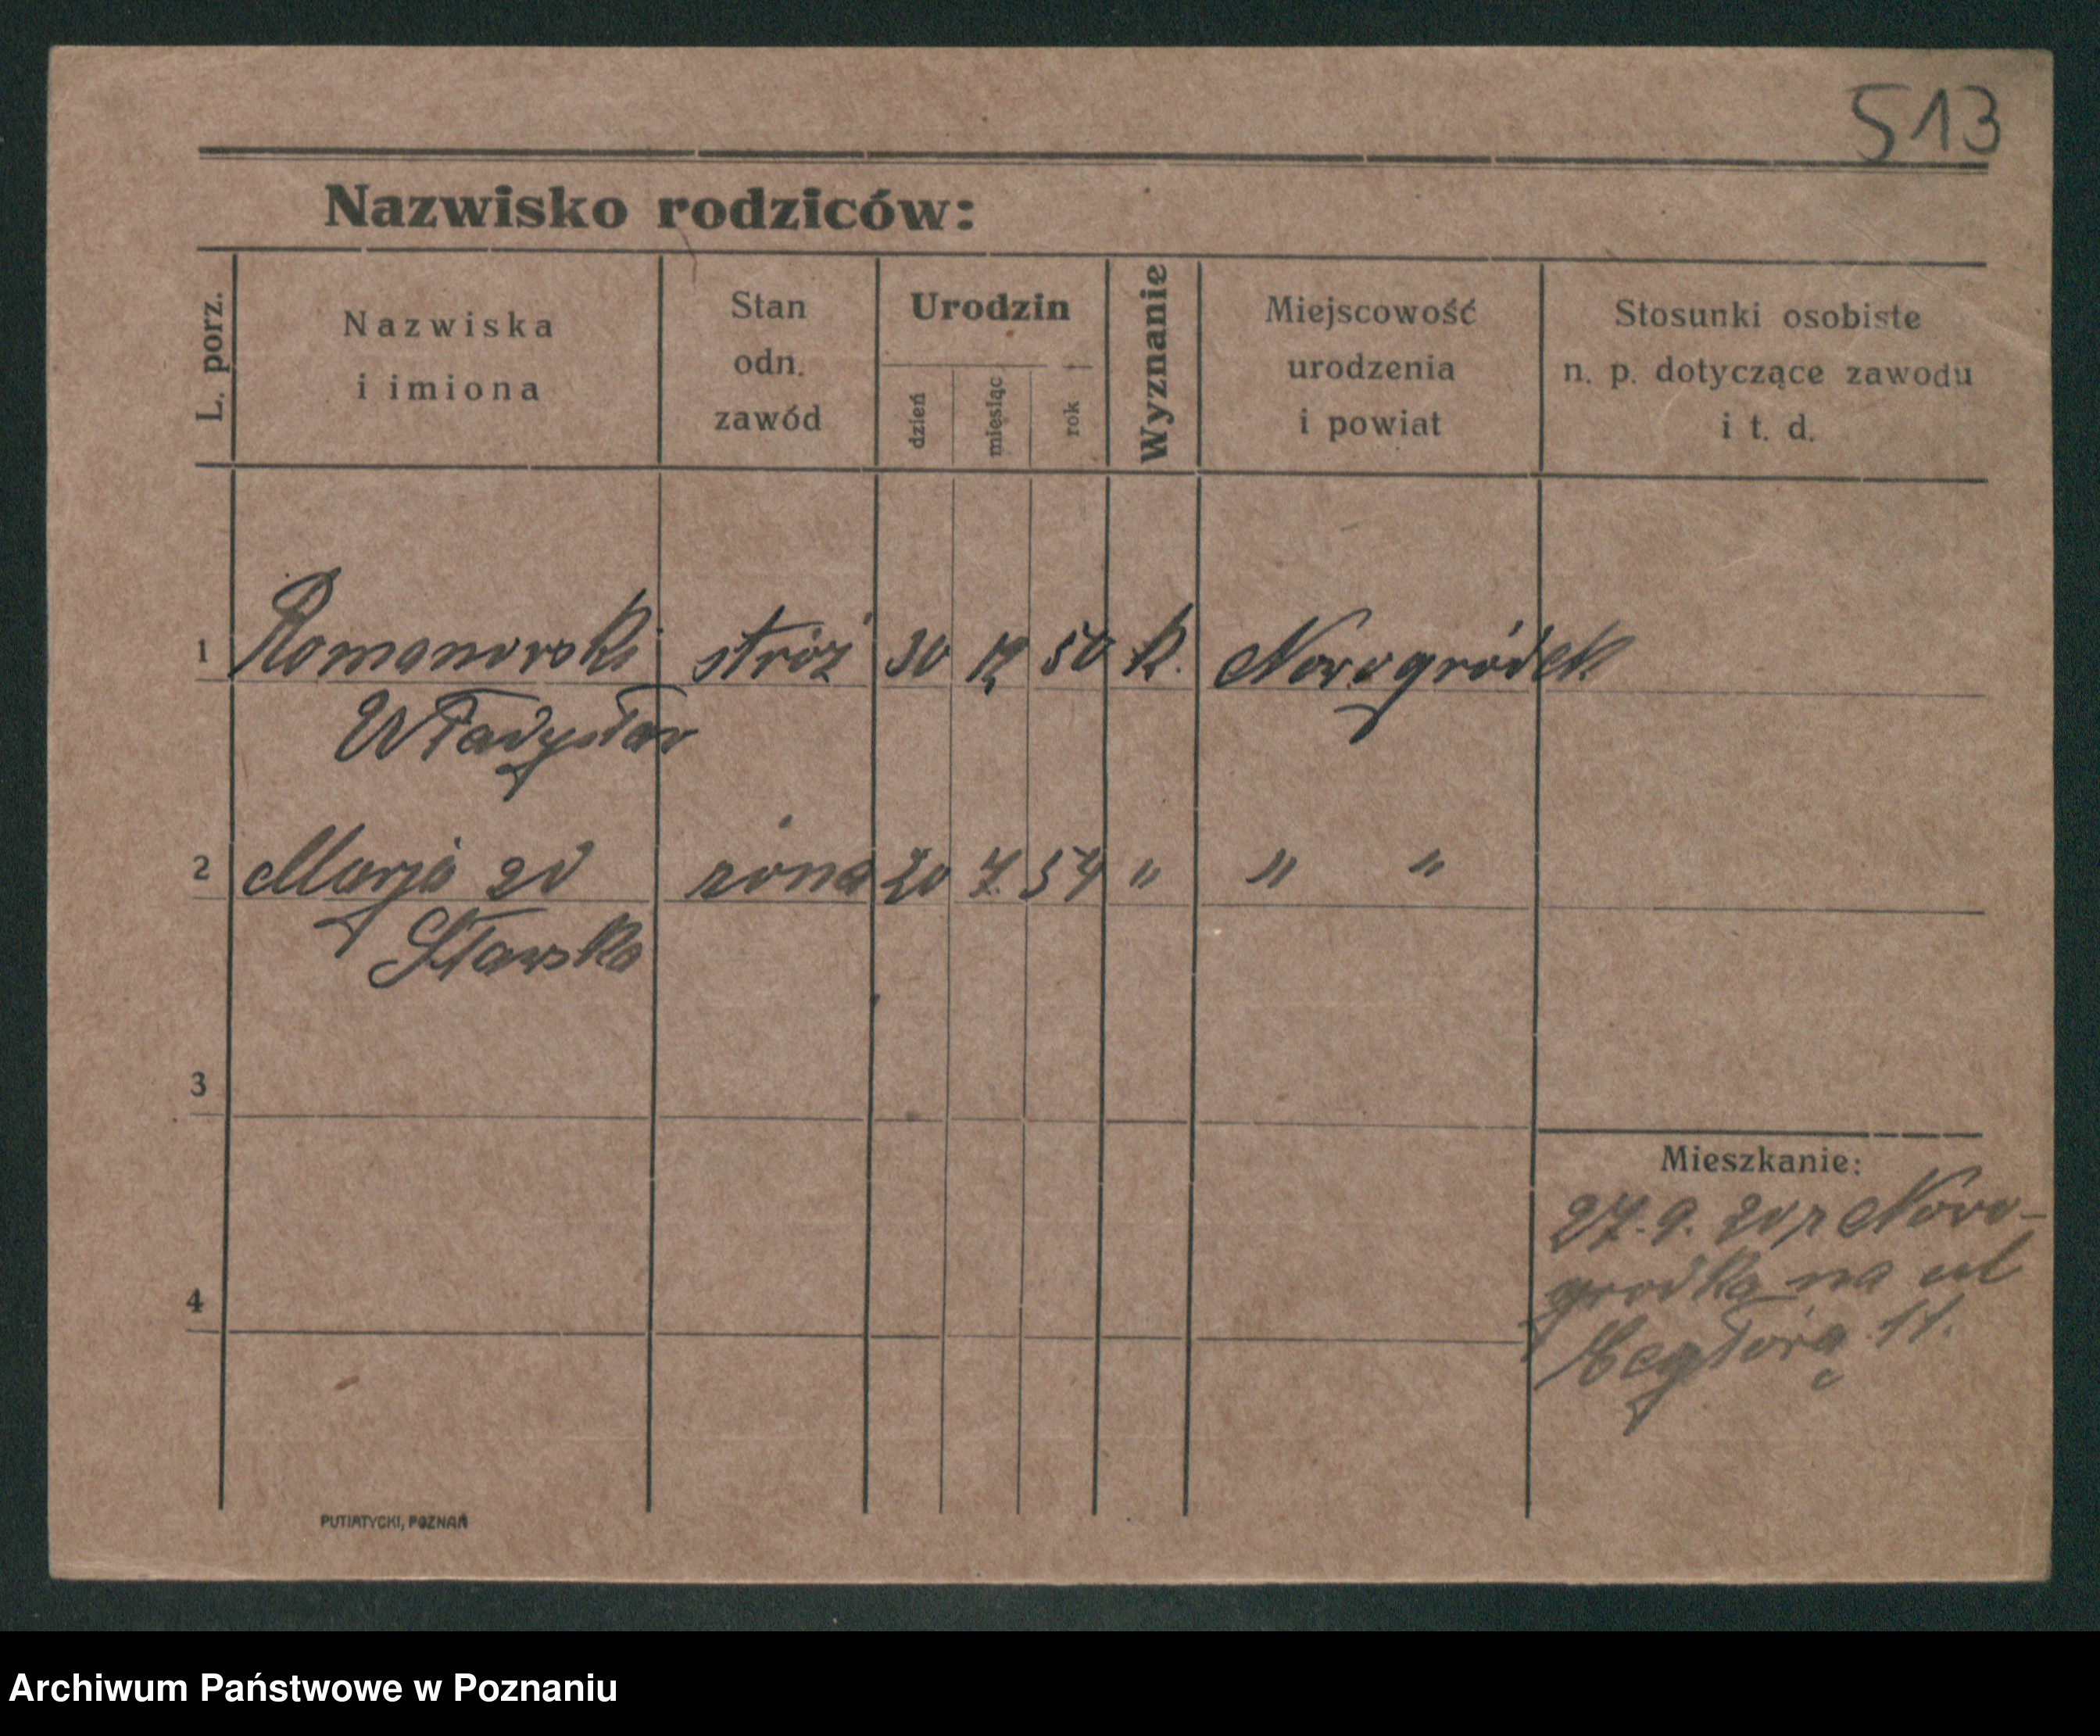 513
Nazwisko rodziców:
L. porz.
Nazwiska
i imiona
Stan
odn.
zawód
Urodzin
dzień
miesiąc
rok
Wyznanie
Miejscowość
urodzenia
i powiat
Stosunki osobiste
n. p. dotyczące zawodu
i t. d.
1 Romanowski stróż 30 12 50 k. Nowogródek
Władysław
2 Marja zd żona 20 7. 54 " " "
Sławska
3
Mieszkanie:
27.9.20 z Nowo-
gródka na ul
11.
4
PUTIATYCKI, POZNAŃ
Archiwum Państwowe w Poznaniu